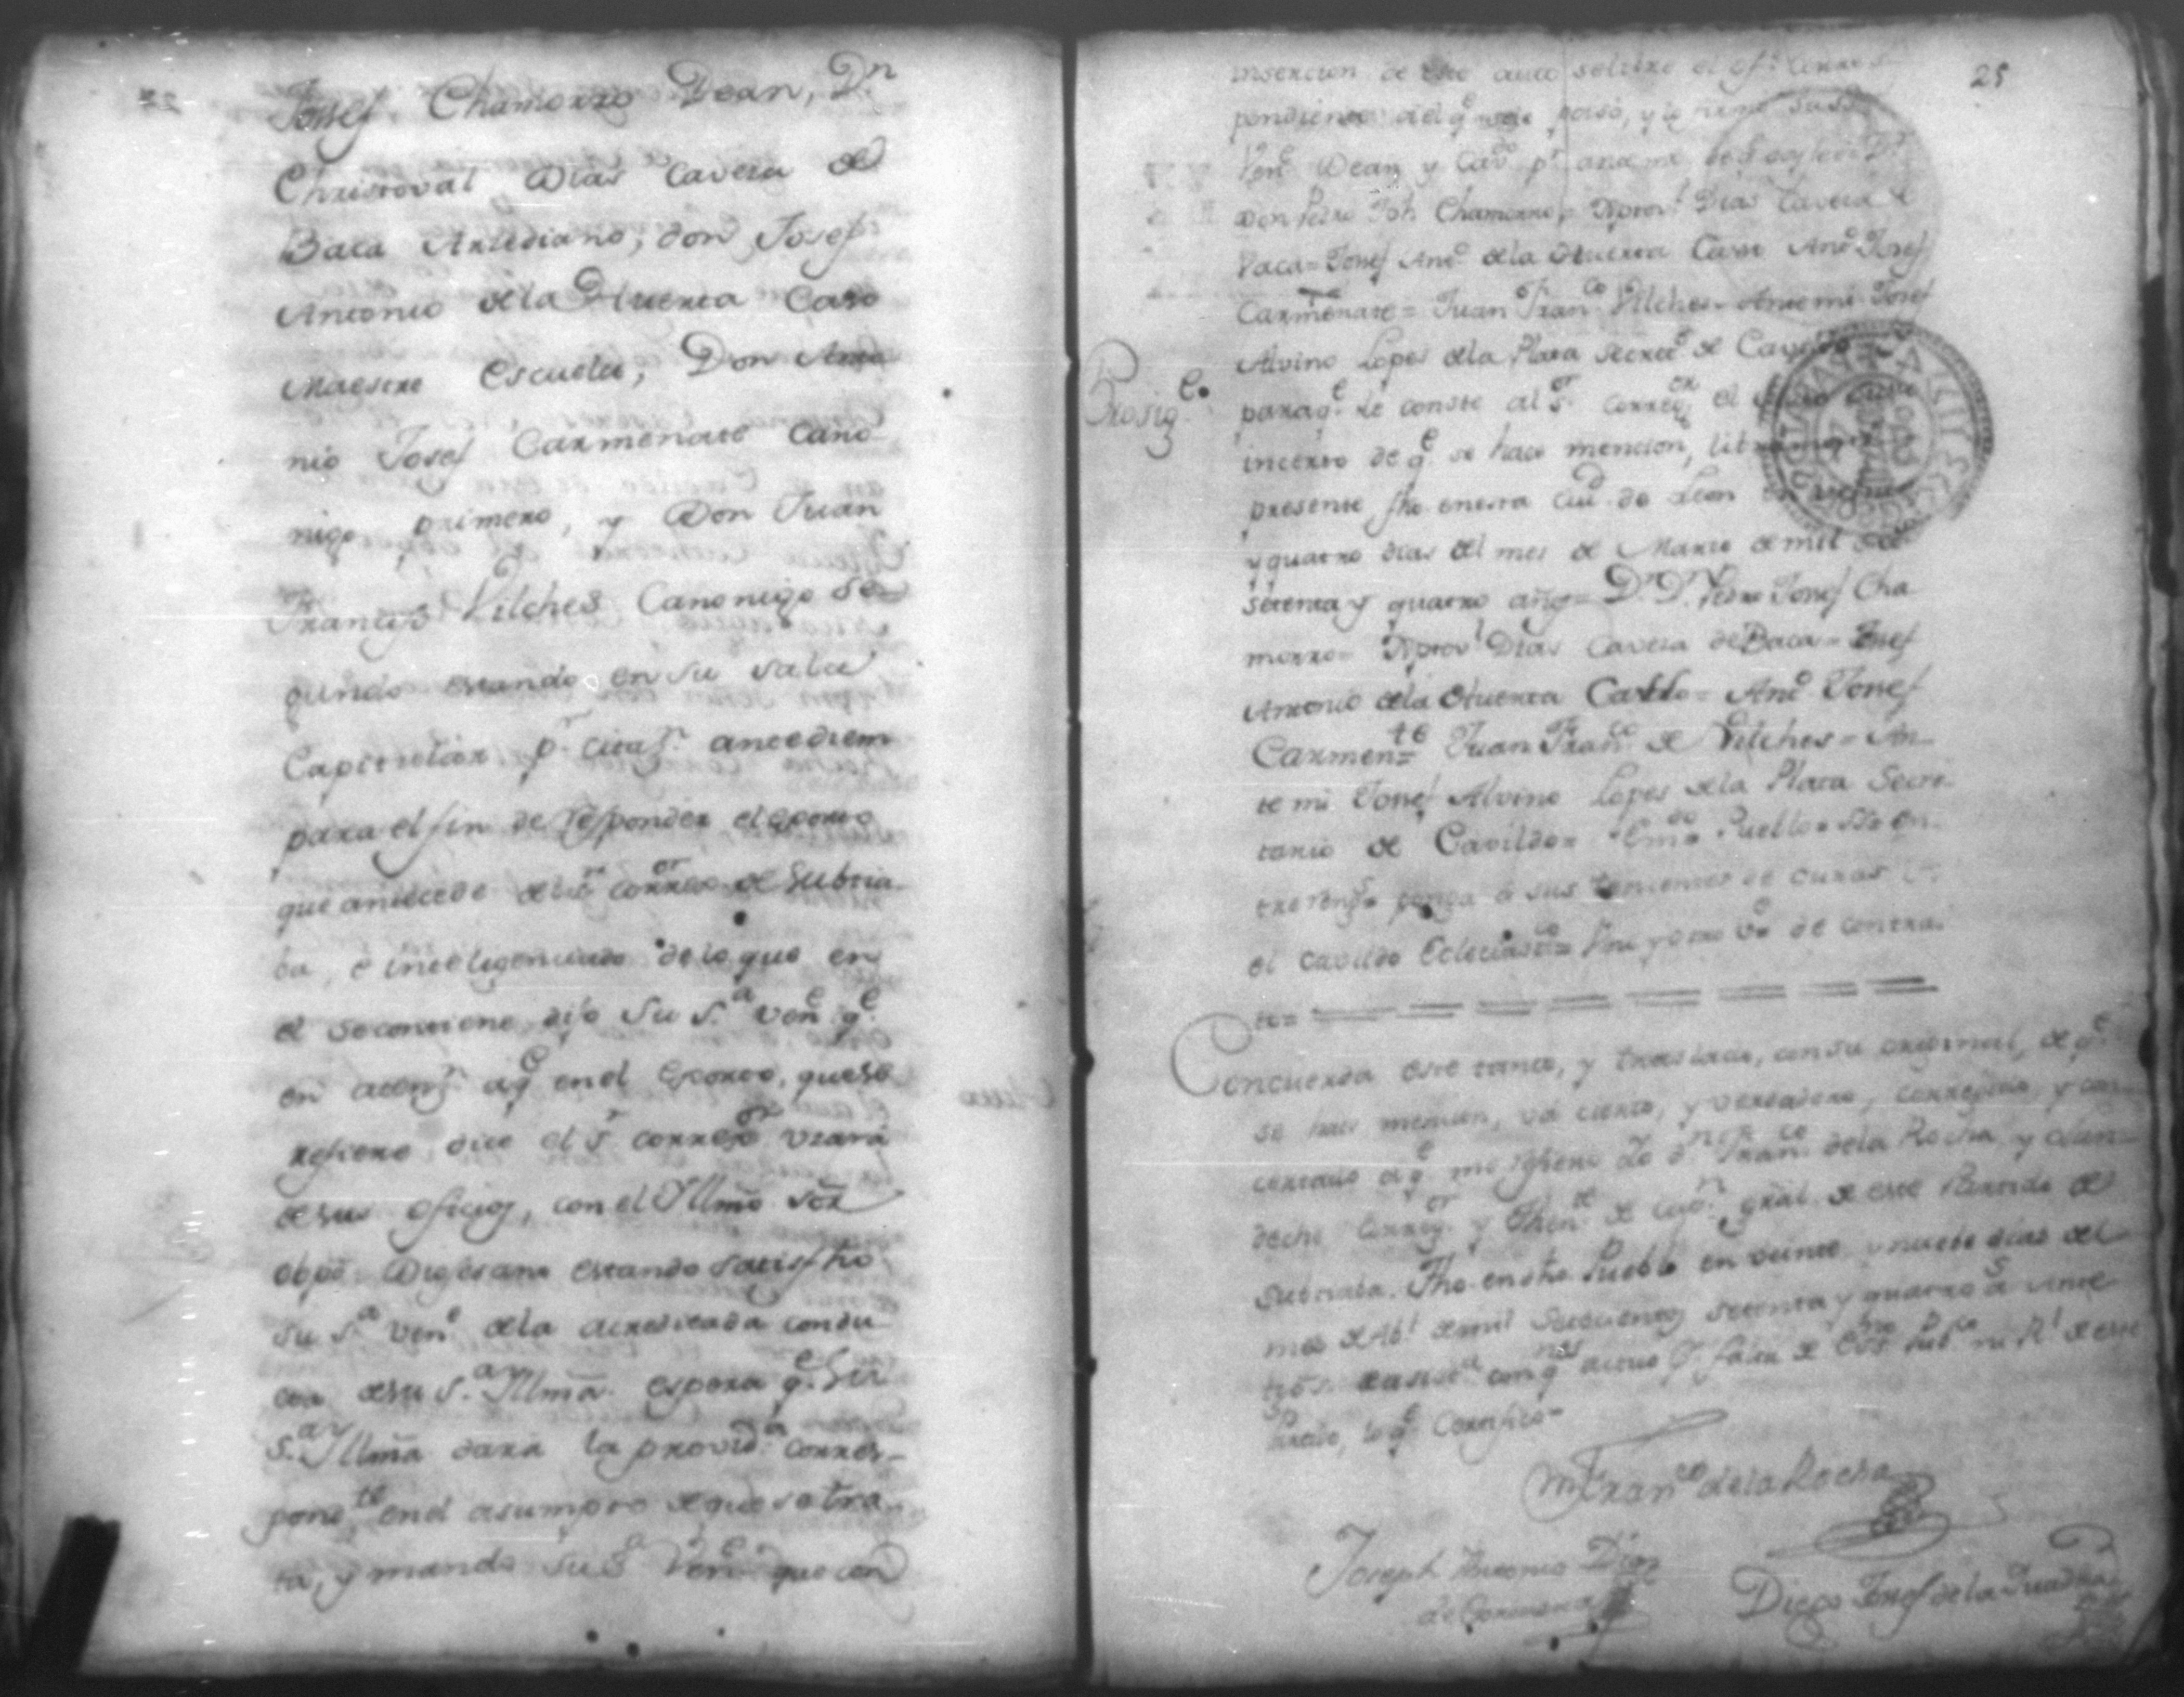 Josef Chamorro Dean, Dn
Christoval Dias Cavesa de
Baca Arcediano, don Josef
Antonio de la Huerta Caso
Maestre Escuela, Don Anto
nio Josef Carmenate Cano
nigo primero, y Don Juan
Francisco Vilches Canonigo Se=
gundo estando en su sala
Capitular pr citasn antediem
para el fin de responder el exorto
que antecede del Sr corregor de Subtia
ba, é inteligenciado de lo que en
el se contiene dijo Su Sa Vene qe
en atensn a qe en el Exorto, que se
refiere dice el Sr corregor usará
de sus oficios, con el Yllmo Sor
obpo Diosesano estando satisfho
su Sa Vene de la acreditada condu
cta de su Sa Yllma espera qe Su
Sa Yllma dara la provida corres-
pondte en el asumpto de que se tra
ta, y mando su Sa Vene que con
25
insercion de este auto
pondiente del qe se paso, y lo firmó su Sa
Vene Dean y Cavdo pr ante mi de qe doy fee
Don Pedro Joh Chamorro = Xptovl Dias Cavesa de
Vaca = Josef Anto de la Huerta Caso Anto Josef
Carmenate = Juan Franco Vilches = Ante mi Josef
Alvino Lopes de la Plata Secreto de Cavildo
Prosige
para qe le conste al Sr Corregor el
incerto de qe se hace mencion,
presente fho en esta Ciud de Leon en veinte
y quatro dias del mes de Marzo de mil
setenta y quatro años = Dr Dn Pedro Josef Cha
morro = Xptovl Dias Cavesa de Baca = Josef
Antonio de la Huerta Casso = Anto Josef
Carmente = Juan Franco de Vilches = An-
te mi Josef Alvino Lopes de la Plata Secre-
tario de Cavildo = Emdo Pueblo =
tre rengs = ponga á sus tenientes de curas
el Cavildo Eclesiastco =
te =
Concuerda este tanto, y traslado, con su original, de qe
se hace mencion, vá cierto, y verdadero, correjido, y con-
certado a qe me refiero Yo Dn Franco de la Rocha, y
dicho Corregor y Thente de Capn gral de este Partido de
Subtiaba. Fho en dho Pueblo en veinte y nueve dias del
mes de Abl de mil Setecientos setenta y quatro as Ante
tgos de asista con qnes actuo Pr falta de Esno Pubco ni Rl de este
lo qe Certifico =
Franco de la Rocha
Joseph Antonio Dias
Diego Josef de la